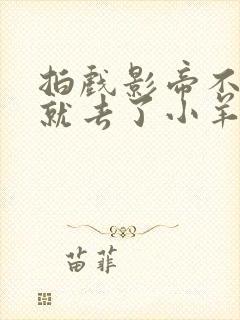 拍戏影帝不
就去了小羊
苗菲